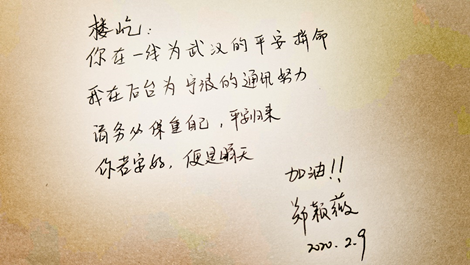 楼屹:
你在一线为武汉的平安拼命
我在后台为宁波的通讯努力
请务必保重自己,平安归来
你若安好,便是晴天
加油!!
郑颖薇
2020.2.9